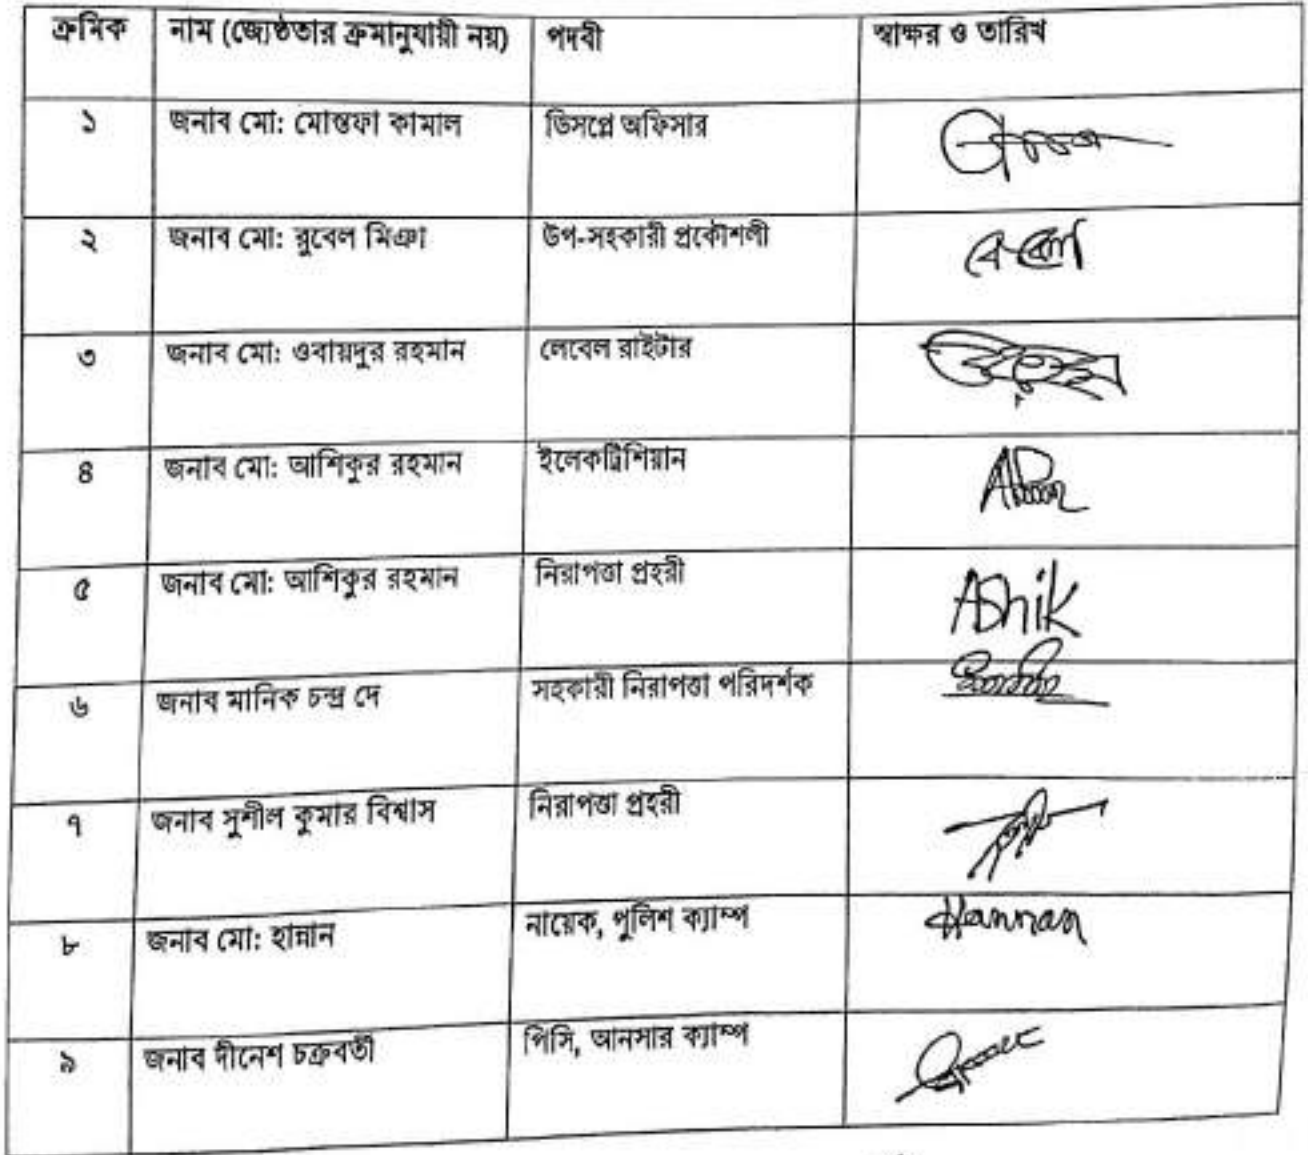 ক্রমিক নাম (জ্যেষ্ঠতার ক্রমানুযায়ী নয়) পদবী স্বাক্ষর ও তারিখ
১ জনাব মো: মোস্তফা কামাল ডিসপ্লে অফিসার
২ জনাব মো: রুবেল মিঞা উপ-সহকারী প্রকৌশলী
৩ জনাব মো: ওবায়দুর রহমান লেবেল রাইটার
৪ জনাব মো: আশিকুর রহমান ইলেকট্রিশিয়ান
৫ জনাব মো: আশিকুর রহমান নিরাপত্তা প্রহরী Ashik
৬ জনাব মানিক চন্দ্র দে সহকারী নিরাপত্তা পরিদর্শক
৭ জনাব সুশীল কুমার বিশ্বাস নিরাপত্তা প্রহরী
৮ জনাব মো: হান্নান নায়েক, পুলিশ ক্যাম্প Hannan
৯ জনাব দীনেশ চক্রবর্তী পিসি, আনসার ক্যাম্প